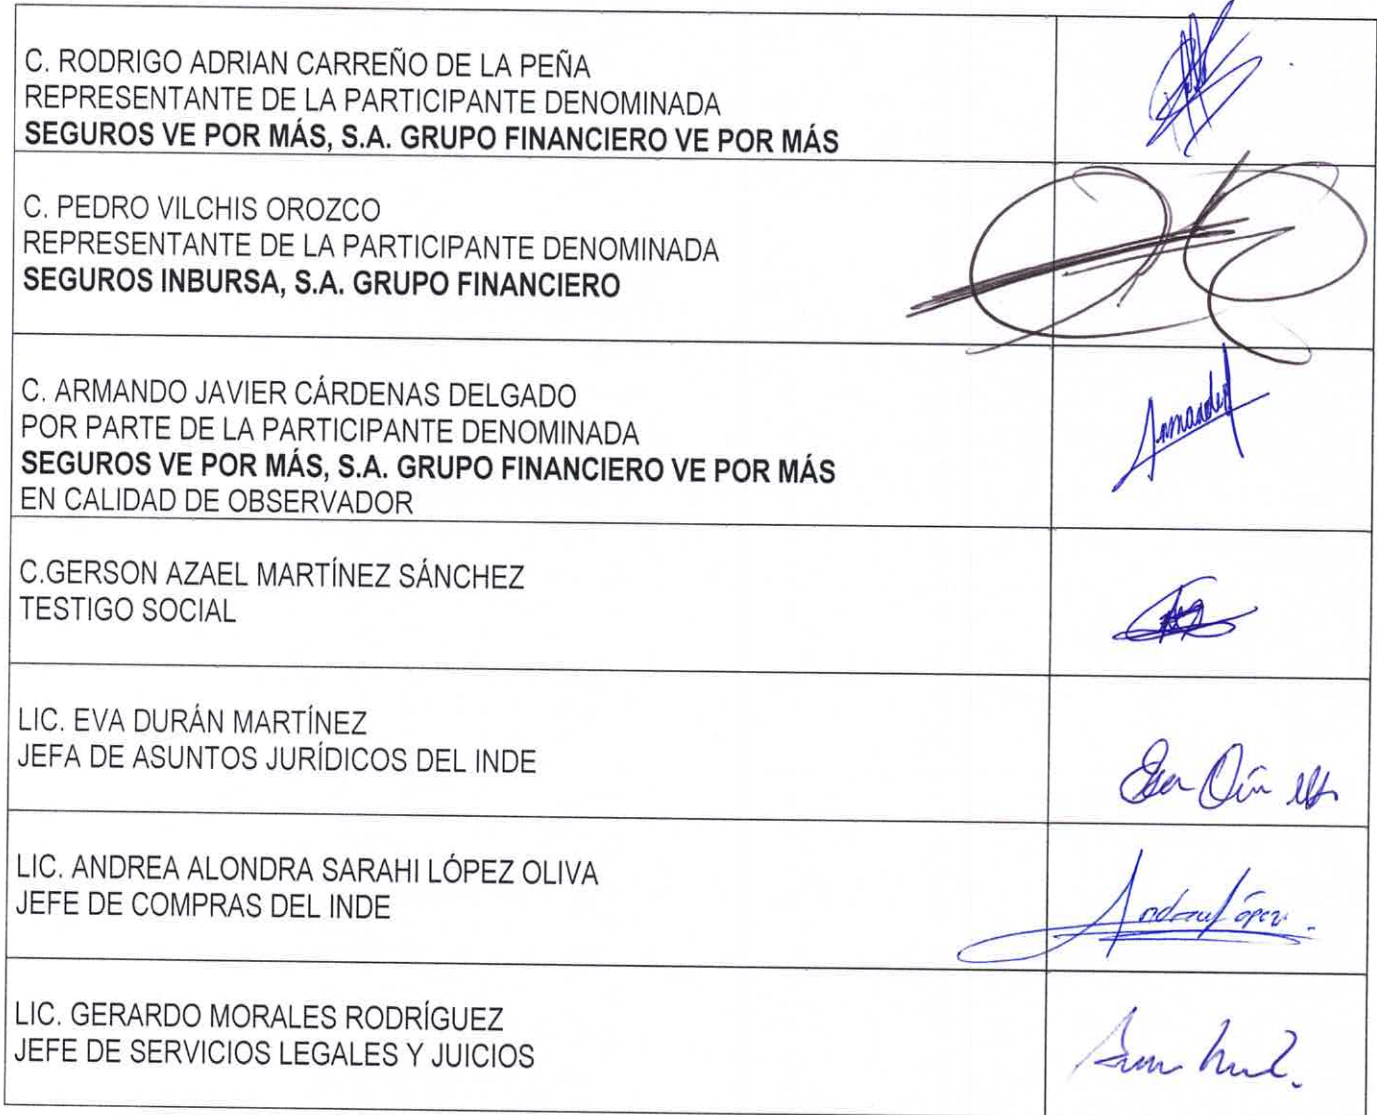 C. RODRIGO ADRIAN CARREÑO DE LA PEÑA
REPRESENTANTE DE LA PARTICIPANTE DENOMINADA
SEGUROS VE POR MÁS, S.A. GRUPO FINANCIERO VE POR MÁS
C. PEDRO VILCHIS OROZCO
REPRESENTANTE DE LA PARTICIPANTE DENOMINADA
SEGUROS INBURSA, S.A. GRUPO FINANCIERO
C. ARMANDO JAVIER CÁRDENAS DELGADO
POR PARTE DE LA PARTICIPANTE DENOMINADA
SEGUROS VE POR MÁS, S.A. GRUPO FINANCIERO VE POR MÁS
EN CALIDAD DE OBSERVADOR
C.GERSON AZAEL MARTÍNEZ SÁNCHEZ
TESTIGO SOCIAL
LIC. EVA DURÁN MARTÍNEZ
JEFA DE ASUNTOS JURÍDICOS DEL INDE
LIC. ANDREA ALONDRA SARAHI LÓPEZ OLIVA
JEFE DE COMPRAS DEL INDE
LIC. GERARDO MORALES RODRÍGUEZ
JEFE DE SERVICIOS LEGALES Y JUICIOS